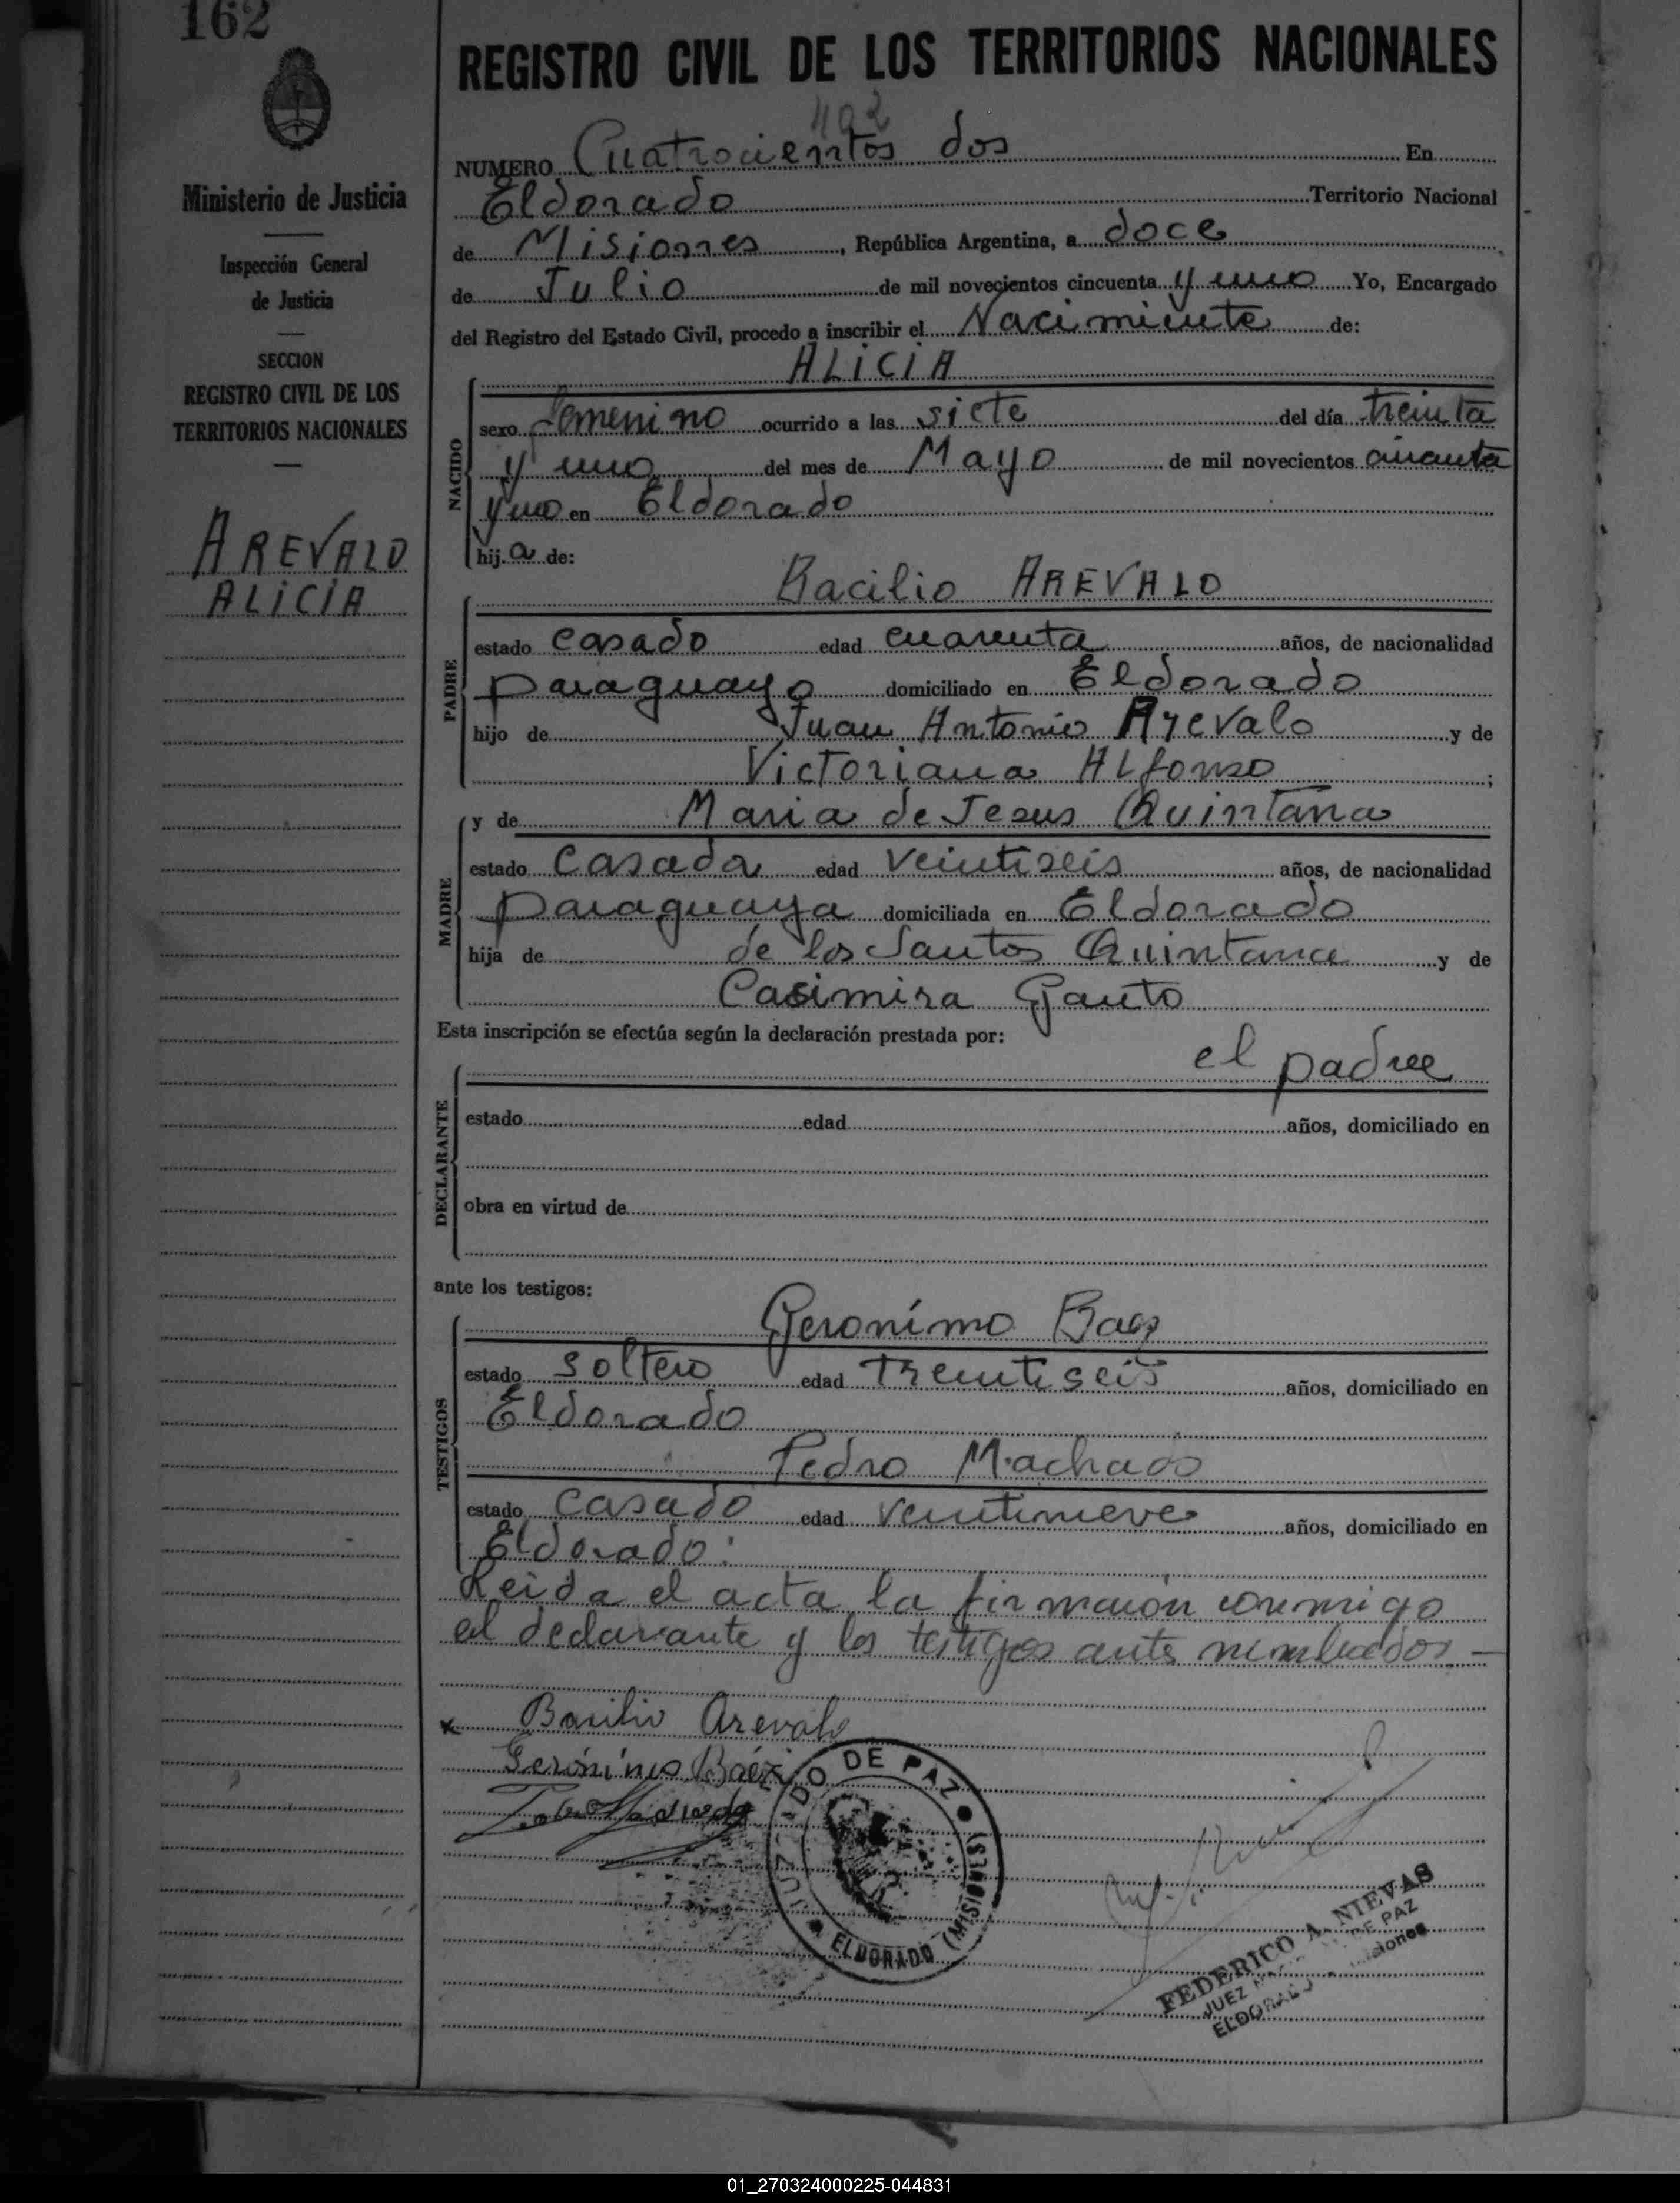 162
Ministerio de Justicia
Inspección General
de Justicia
SECCION
REGISTRO CIVIL DE LOS
TERRITORIOS NACIONALES
AREVALO
ALICIA
REGISTRO CIVIL DE LOS TERRITORIOS NACIONALES
402
NUMERO Cuatrocientos dos En
Eldorado Territorio Nacional
de Misiones, República Argentina, a doce
de Julio de mil novecientos cincuenta y uno Yo, Encargado
del Registro del Estado Civil, procedo a inscribir el Nacimiento de:
NACIDO
ALICIA
sexo femenino ocurrido a las siete del día treinta
y uno del mes de Mayo de mil novecientos
y uno en Eldorado
hija de:
PADRE
Bacilio AREVALO
estado casado edad cuarenta años, de nacionalidad
paraguayo domiciliado en Eldorado
hijo de Juan Antonio Arevalo y de
Victoriana Alfonso;
MADRE
y de Maria de Jesus Quintana
estado casada edad veintiseis años, de nacionalidad
paraguaya domiciliada en Eldorado
hija de de los Santos Quintana y de
Casimira Gauto
Esta inscripción se efectúa según la declaración prestada por:
DECLARANTE
el padre
estado edad años, domiciliado en
obra en virtud de
ante los testigos:
TESTIGOS
Geronimo Baez
estado soltero edad treintiseis años, domiciliado en
Eldorado
Pedro Machado
estado casado edad veintinueve años, domiciliado en
Eldorado:
Leida el acta la firmaron conmigo
el declarante y los testigos antes nombrados —
x Basilio Arevalo
Gerónimo Baéz
JUZGADO DE PAZ
ELDORADO (MISIONES)
FEDERICO A. NIEVAS
JUEZ DE PAZ
ELDORADO - Misiones
01_270324000225-044831